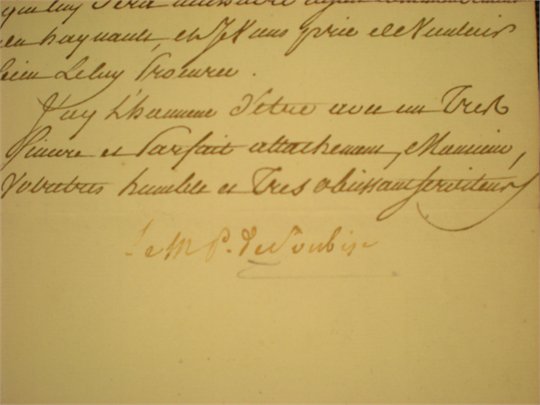 que luy sera nécessaire
en haynault, et Je Vous prie de Vouloir
bien Le luy Procurer.
J'ay L'honneur d'être avec un Tres
Sincere et Parfait attachement, Monsieur,
Votre tres humble et Tres obeissant serviteur
Le M P. de Soubise